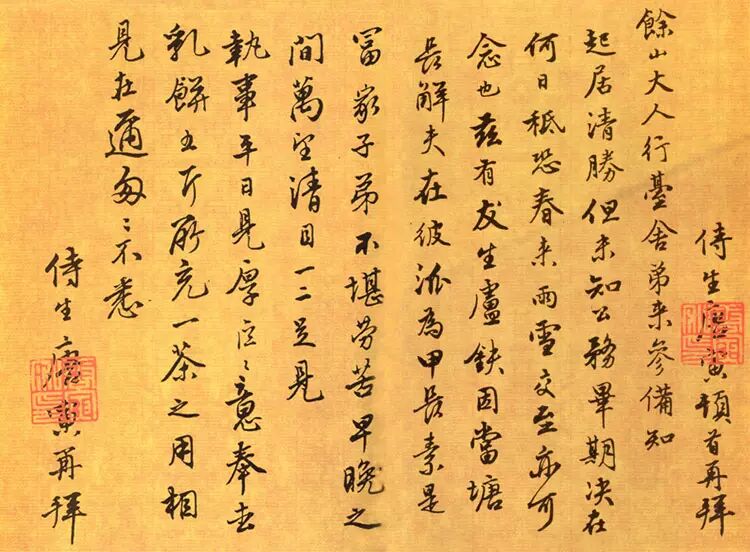 侍生唐寅頓首再拜
餘山大人行臺舍弟来參備知
起居清勝但未知公務畢期决在
何日秪恐春来雨雪交至亦可
念也茲有友生盧鉄因當塘
長解夫在彼派為甲長素是
冨家子弟不堪劳苦早晚之
間萬望清目一二足見
執事平日見厚區〻意奉去
乳餅五斤所充一茶之用相
見在邇匆〻不悉
侍生唐寅再拜